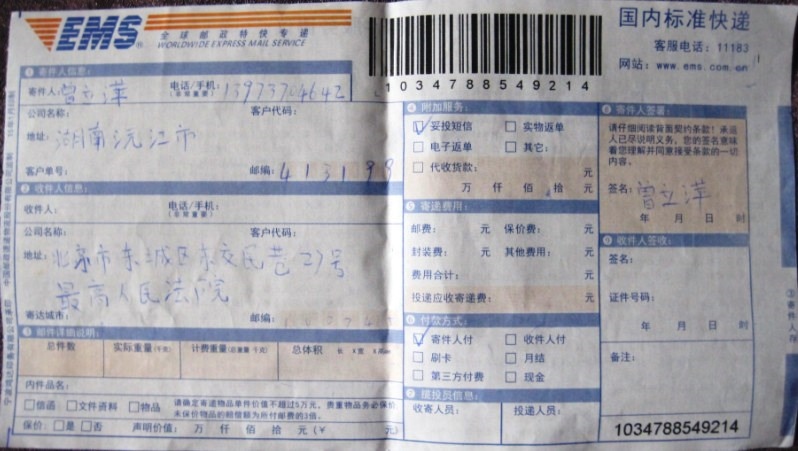 EMS® 全球邮政特快专递
WORLDWIDE EXPRESS MAIL SERVICE
1034788549214
国内标准快递
客服电话：11183
网站：www.ems.com.cn
1 寄件人信息：
寄件人：曾立萍 电话/手机：(非常重要) 13973704642
公司名称： 客户代码：
地址：湖南沅江市
客户单号： 邮编：413199
2 收件人信息：
收件人： 电话/手机：(非常重要)
公司名称： 客户代码：
地址：北京市东城区东交民巷27号
最高人民法院
寄达城市： 邮编：
3 邮件详细说明：
总件数 实际重量(千克) 计费重量(总重量 千克) 总体积 长 X 宽 X 高
内件品名：
□信函 □文件资料 □物品 请确定寄递物品单件价值不超过5万元，贵重物品务必保价
未保价物品的赔偿额为所付邮费的3倍。
保价：□是 □否 声明价值： 万 仟 佰 拾 元（￥ 元）
4 附加服务：
☑ 妥投短信 □ 实物返单
□ 电子返单 □ 其它：
□ 代收货款： 元
万 仟 佰 拾 元
5 寄递费用：
邮费： 元 保价费： 元
封装费： 元 其他费用： 元
费用合计： 元
投递应收寄递费： 元
6 付款方式：
☑ 寄件人付 □ 收件人付
□ 刷卡 □ 月结
□ 第三方付费 □ 现金
7 揽投员信息：
收寄人员： 投递人员：
8 寄件人签署：
请仔细阅读背面契约条款！承运
人已尽说明义务，您的签名意味
着您理解并同意接受条款的一切
内容。
签名：曾立萍
年 月 日 时
9 收件人签收：
签名：
证件号码：
年 月 日 时
备注：
1034788549214
③寄件人存